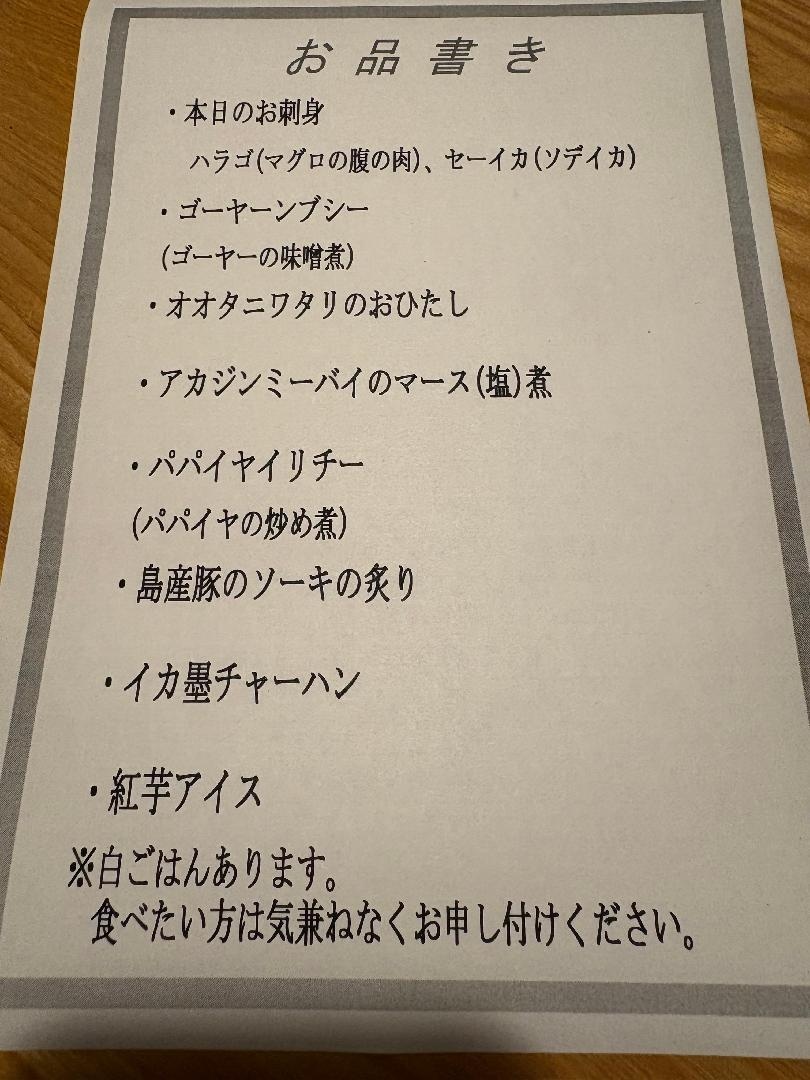 お品書き
・本日のお刺身
ハラゴ(マグロの腹の肉)、セーイカ(ソデイカ)
・ゴーヤーンブシー
(ゴーヤーの味噌煮)
・オオタニワタリのおひたし
・アカジンミーバイのマース(塩)煮
・パパイヤイリチー
(パパイヤの炒め煮)
・島産豚のソーキの炙り
・イカ墨チャーハン
・紅芋アイス
※白ごはんあります。
食べたい方は気兼ねなくお申し付けください。